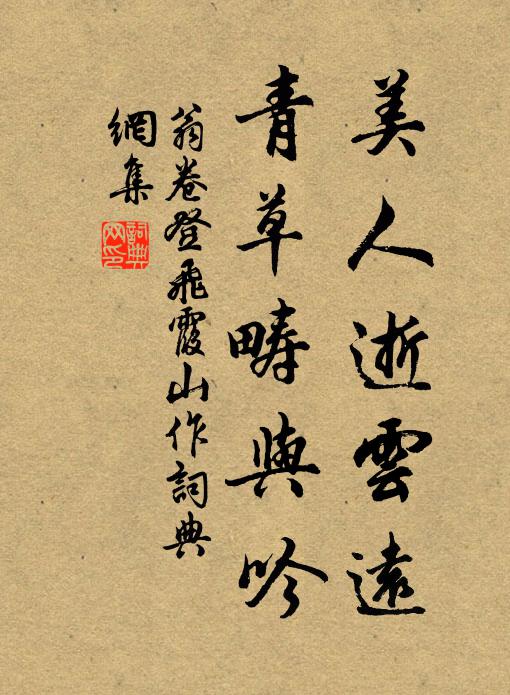 美人逝雲遠
青草疇與吟
翁卷登飛霞山作詞典
網集
詞典
网印